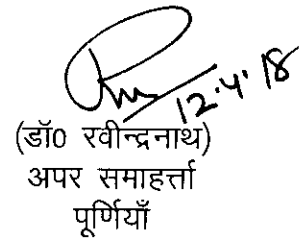 12.4.18
(डॉ0 रवीन्द्रनाथ)
अपर समाहर्त्ता
पूर्णियाँ